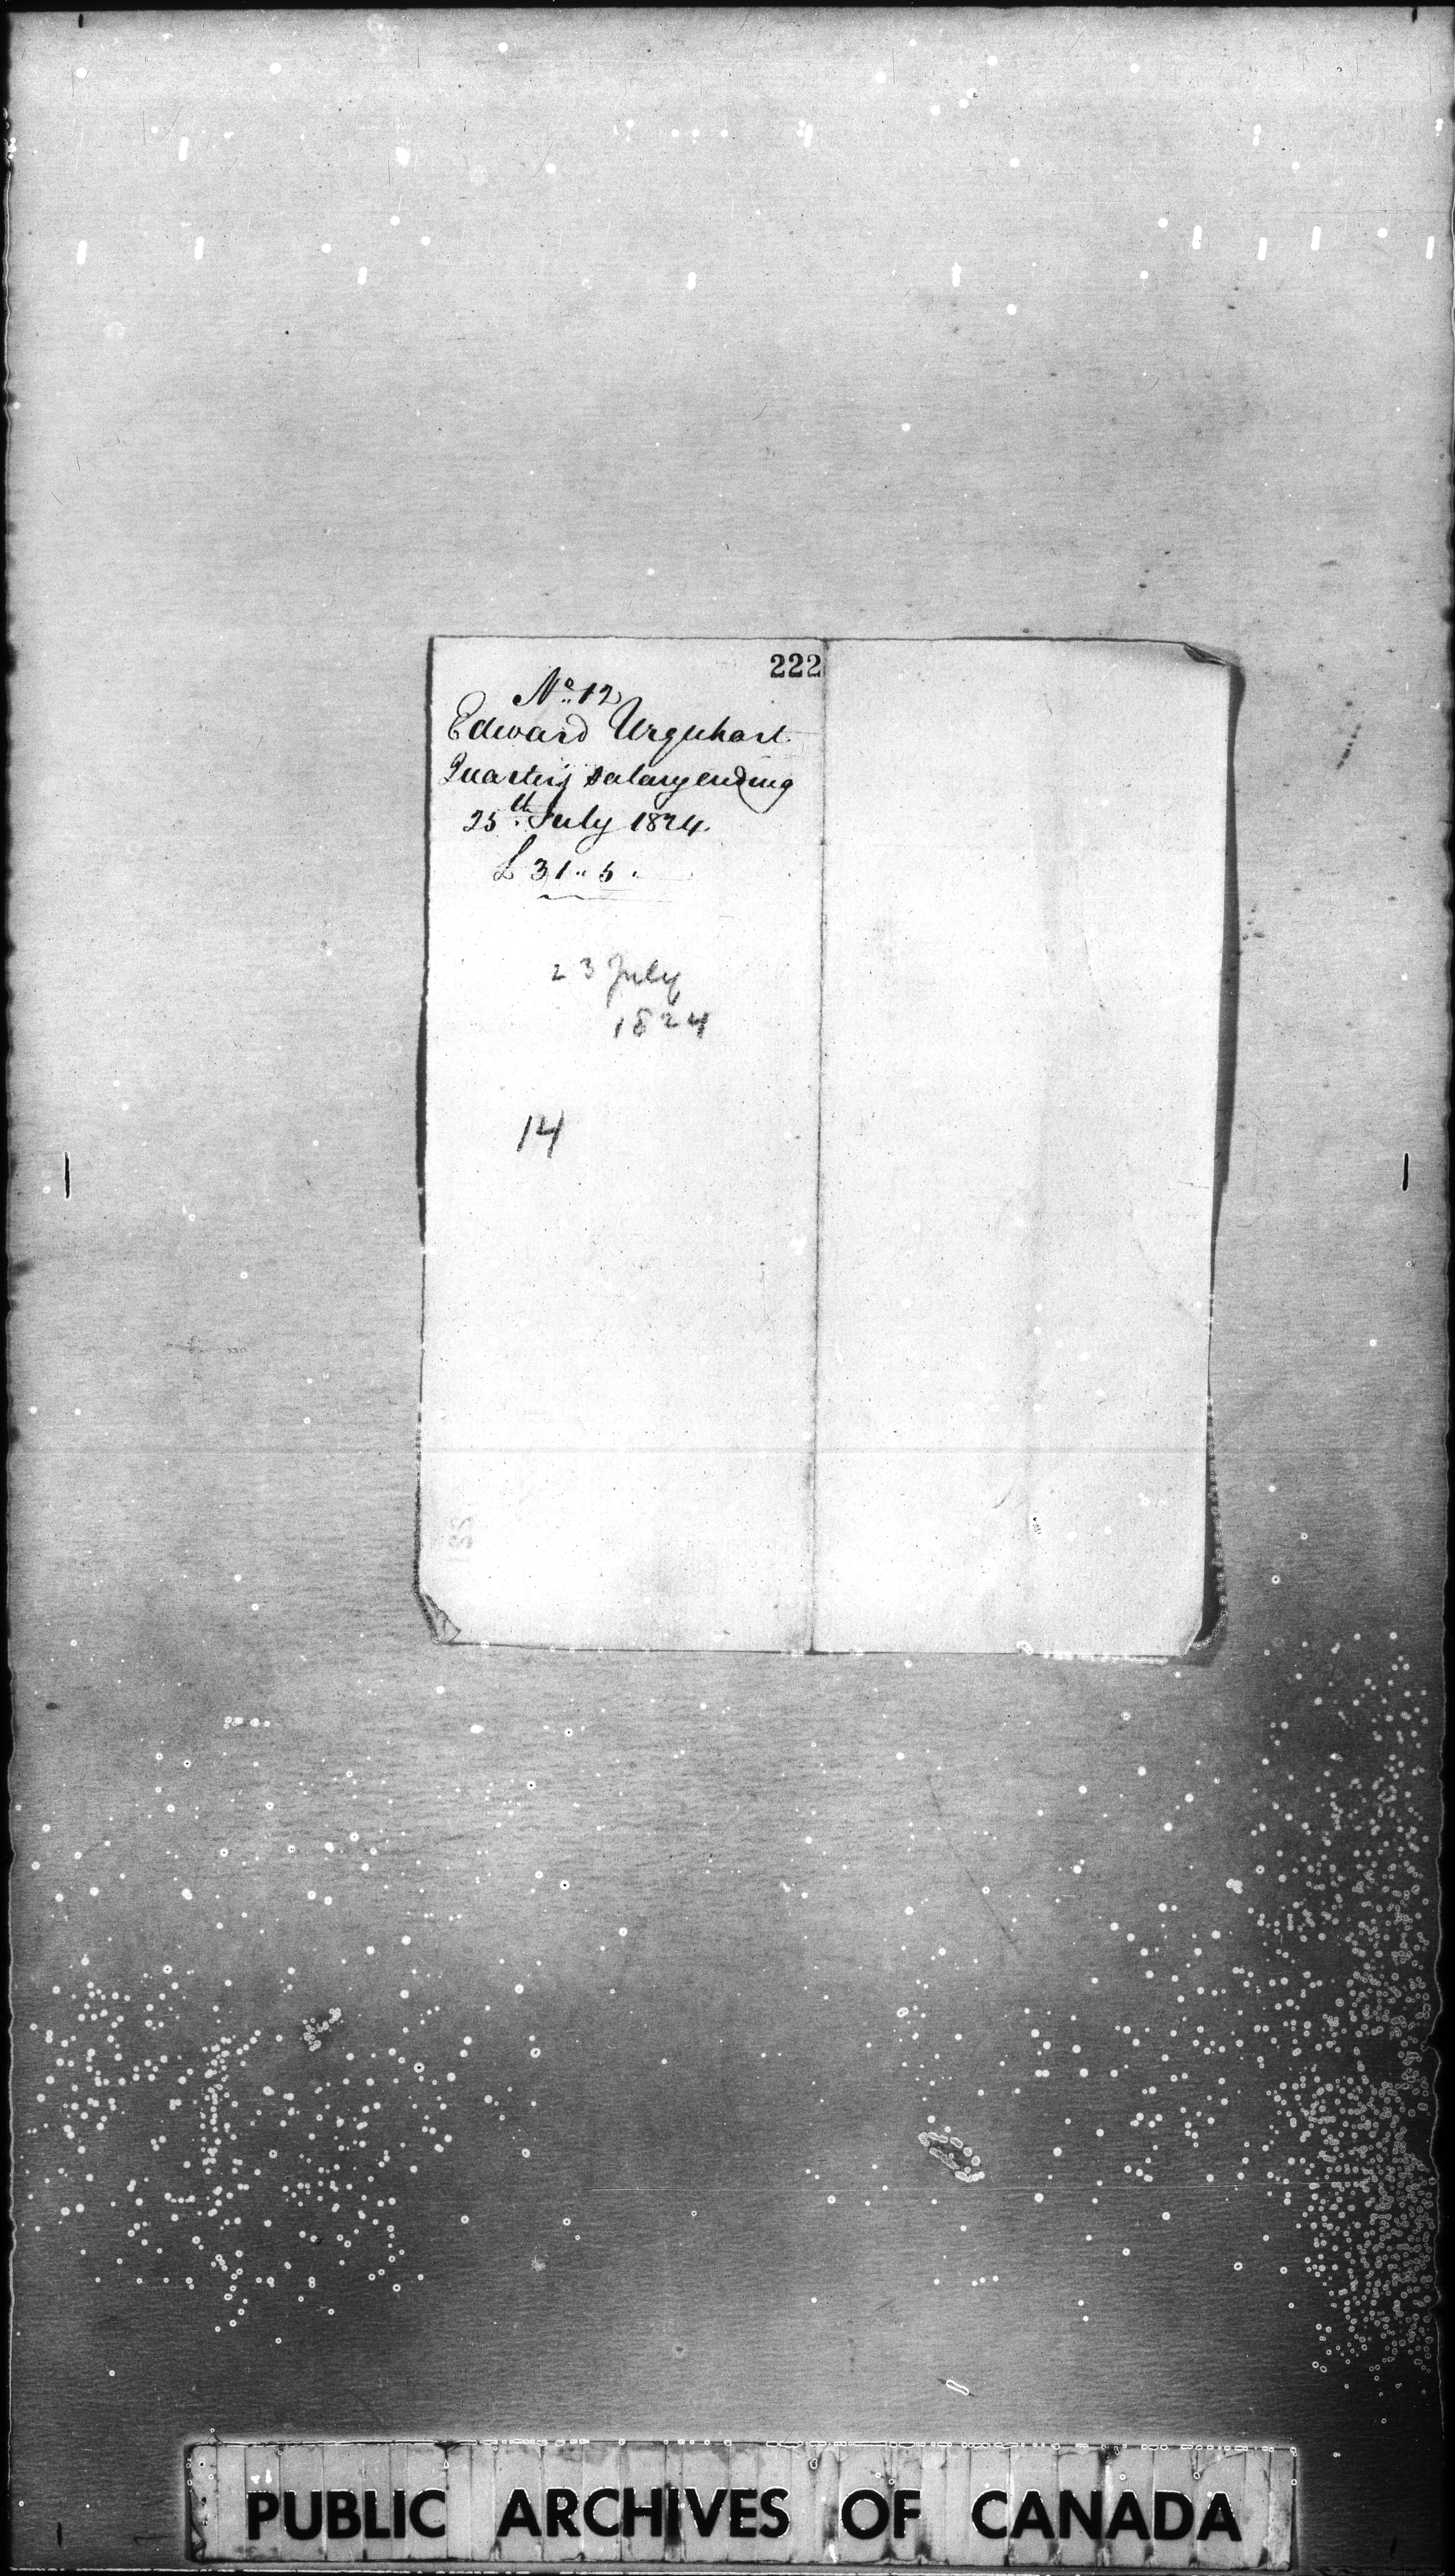 222
No. 12
Edward Urquhart
Quarters salary ending
25th July 1824.
£ 31.. 5.
23 July
1824
14
PUBLIC ARCHIVES OF CANADA